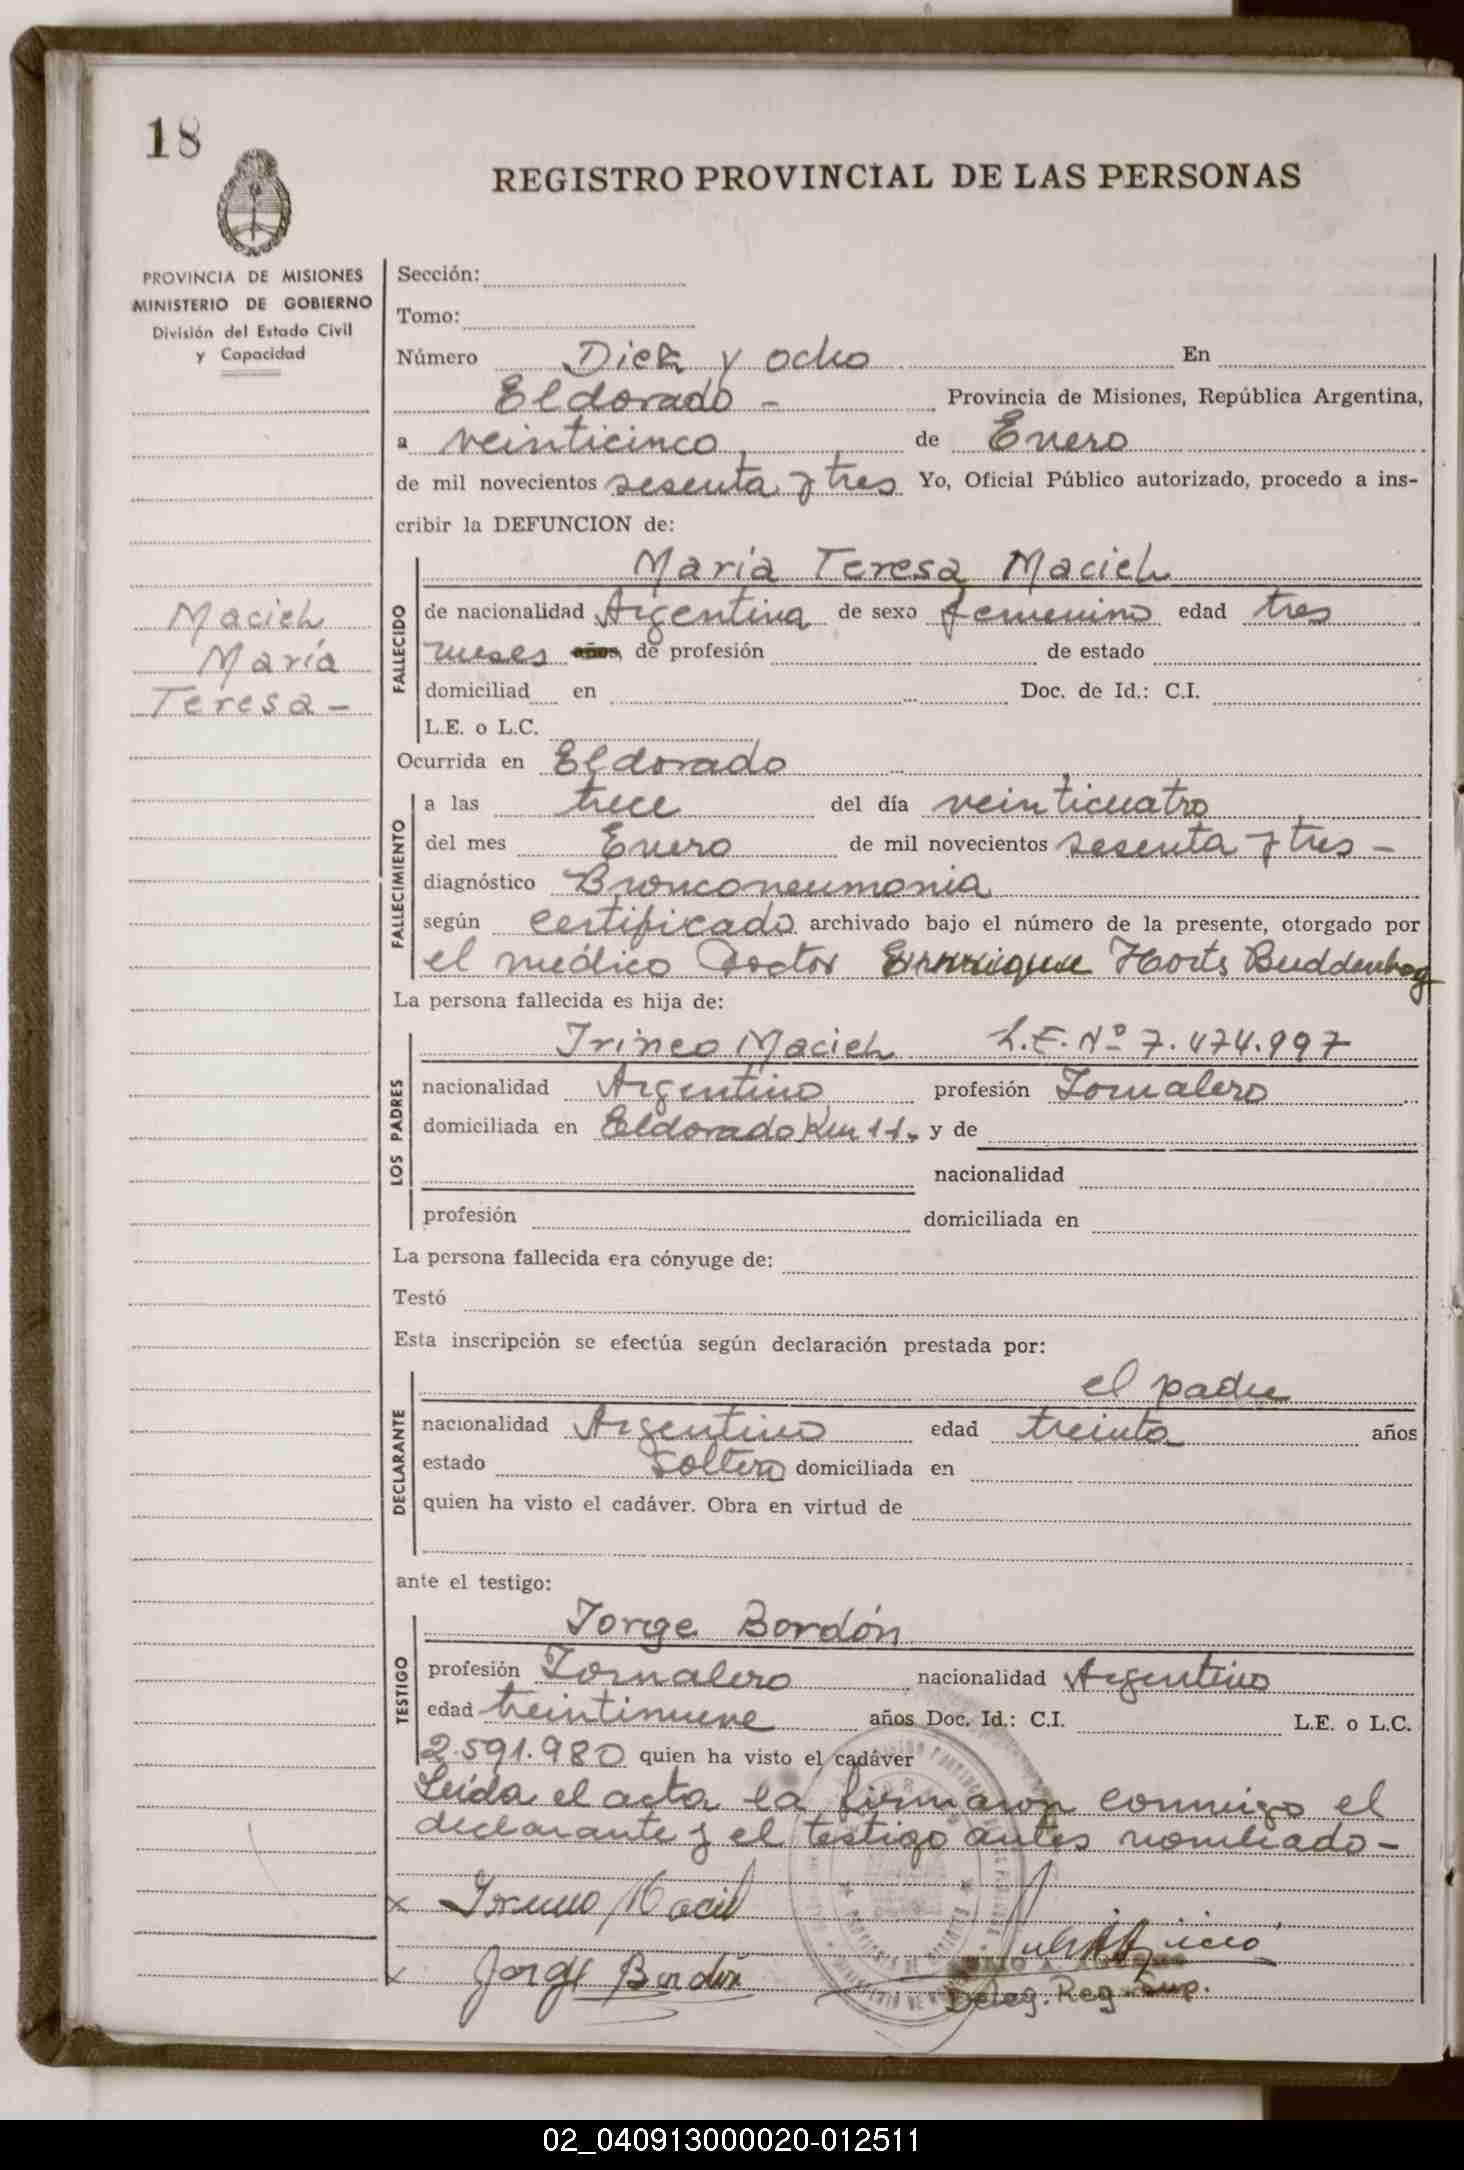 18
REGISTRO PROVINCIAL DE LAS PERSONAS
PROVINCIA DE MISIONES
MINISTERIO DE GOBIERNO
División del Estado Civil
y Capacidad
Macieh
María
Teresa -
Sección:
Tomo:
Número Diez y ocho En
Eldorado - Provincia de Misiones, República Argentina,
a veinticinco de Enero
de mil novecientos sesenta y tres Yo, Oficial Público autorizado, procedo a ins-
cribir la DEFUNCION de:
María Teresa Macieh
FALLECIDO
de nacionalidad Argentina de sexo femenino edad tres
meses años, de profesión de estado
domiciliad en Doc. de Id.: C.I.
L.E. o L.C.
Ocurrida en Eldorado
FALLECIMIENTO
a las trece del día veinticuatro
del mes Enero de mil novecientos sesenta y tres -
diagnóstico Bronconeumonia
según certificado archivado bajo el número de la presente, otorgado por
el médico Doctor Enrrique Horts
La persona fallecida es hija de:
LOS PADRES
Irineo Macieh L.E. Nº 7.474.997
nacionalidad Argentino profesión Jornalero
domiciliada en Eldorado Km 11. y de
nacionalidad
profesión domiciliada en
La persona fallecida era cónyuge de:
Testó
Esta inscripción se efectúa según declaración prestada por:
DECLARANTE
el padre
nacionalidad Argentino edad treinta años
estado Soltero domiciliada en
quien ha visto el cadáver. Obra en virtud de
ante el testigo:
TESTIGO
Jorge Bordón
profesión Jornalero nacionalidad Argentino
edad treintinueve años Doc. Id.: C.I. L.E. o L.C.
2.591.980 quien ha visto el cadáver
Leída el acta la firmaron conmigo el
declarante y el testigo antes nombrado -
x
x Jorge Bordón
Deleg. Reg. Sup.
02_040913000020-012511